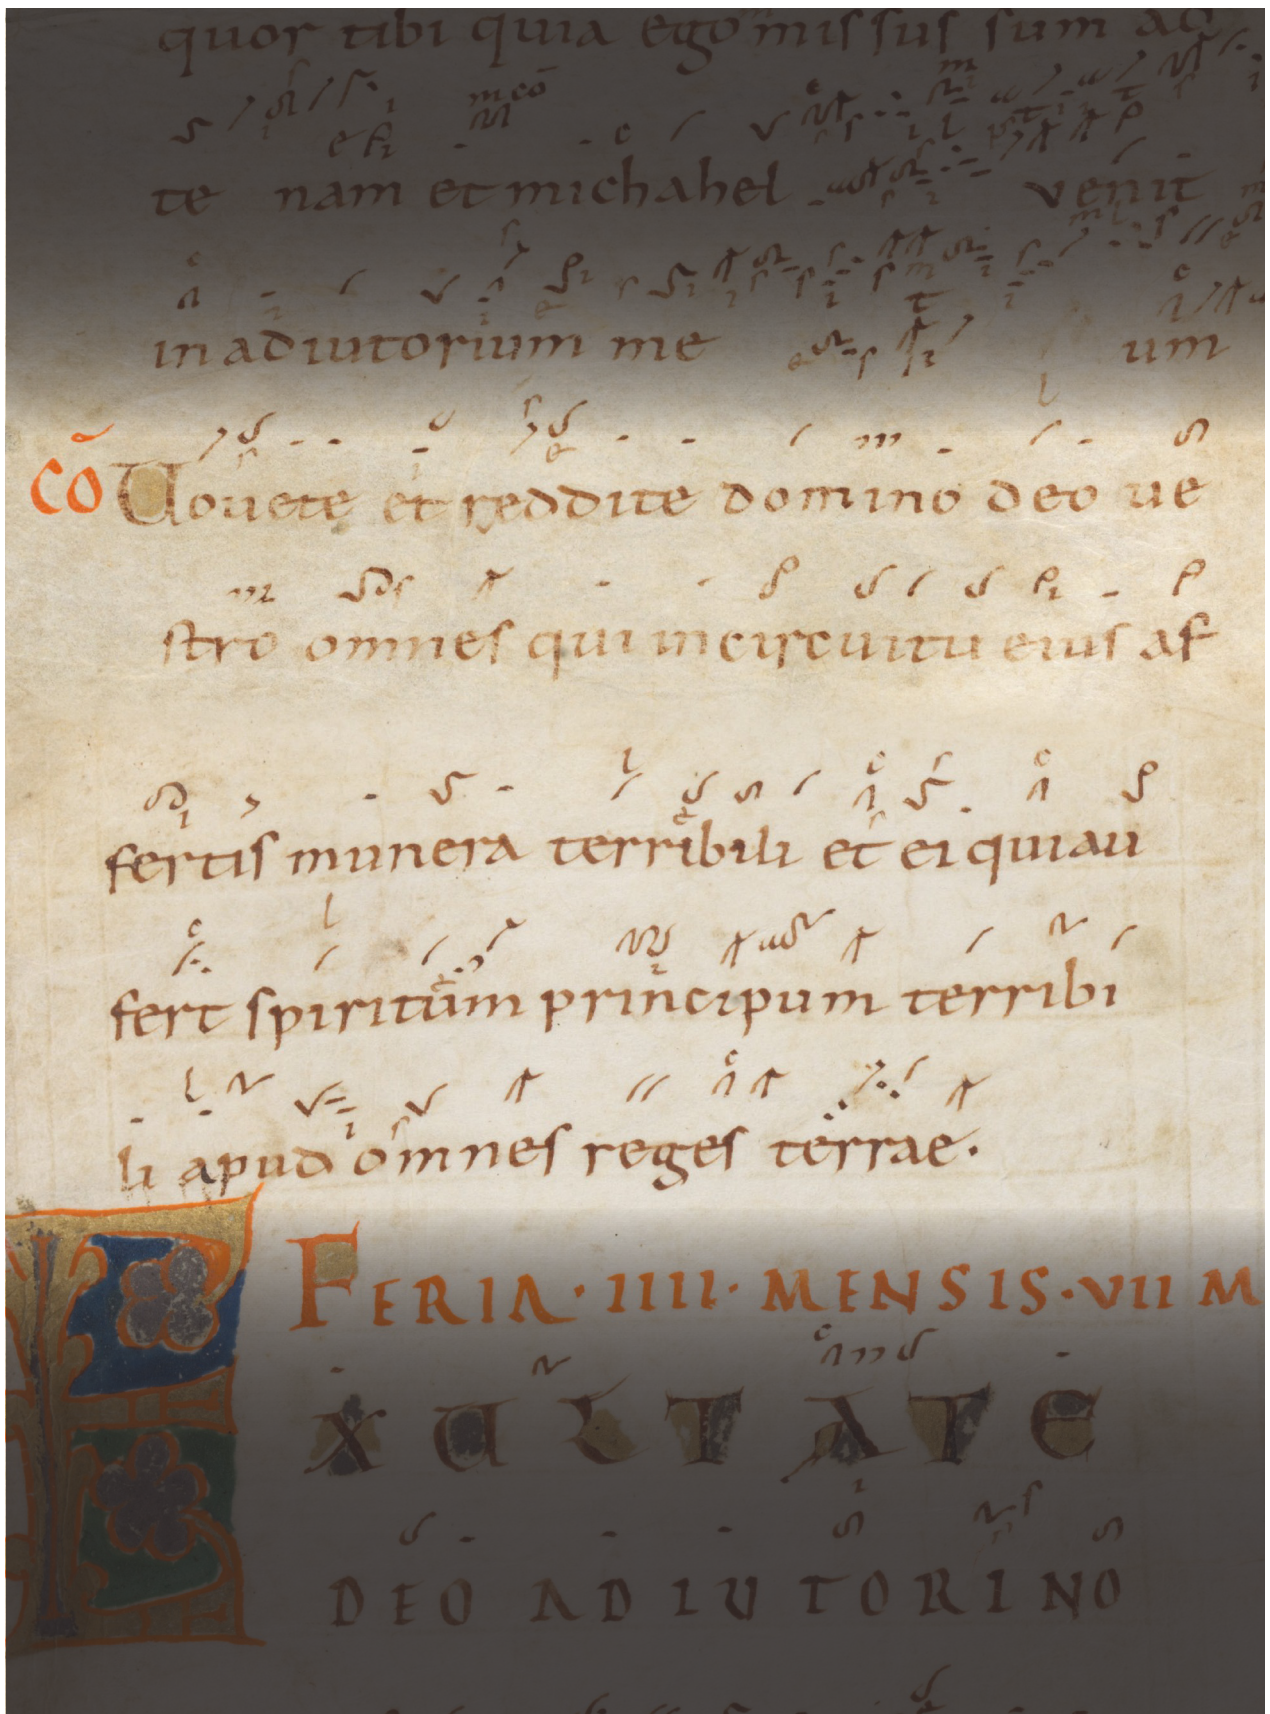 quor tibi quia ego missus sum ad
te nam et michahel venit
in adiutorium me um
cō Uouete et reddite domino deo ue
stro omnes qui in circuitu eius af
fertis munera terribili et ei qui au
fert spiritum principum terribi
li apud omnes reges terrae.
FERIA · IIII · MENSIS · VII M
XULTATE
DEO ADIUTORI NO